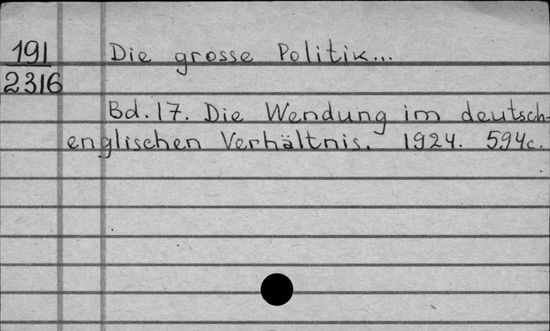 191 Die grosse Politik...
2316
Bd. 17. Die Wendung im deutsch-
englischen Verhältnis. 1924. 594c.